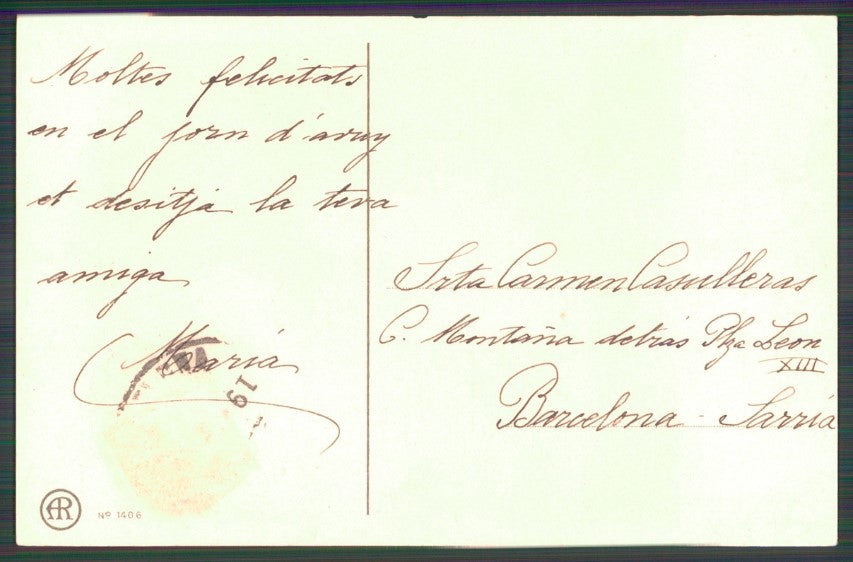 Moltes felicitats
en el jorn d'avuy
et desitja la teva
amiga
María
19
AR
Nº 1406
Srta Carmen Casulleras
C. Montaña detrás Plza Leon
XIII
Barcelona - Sarriá